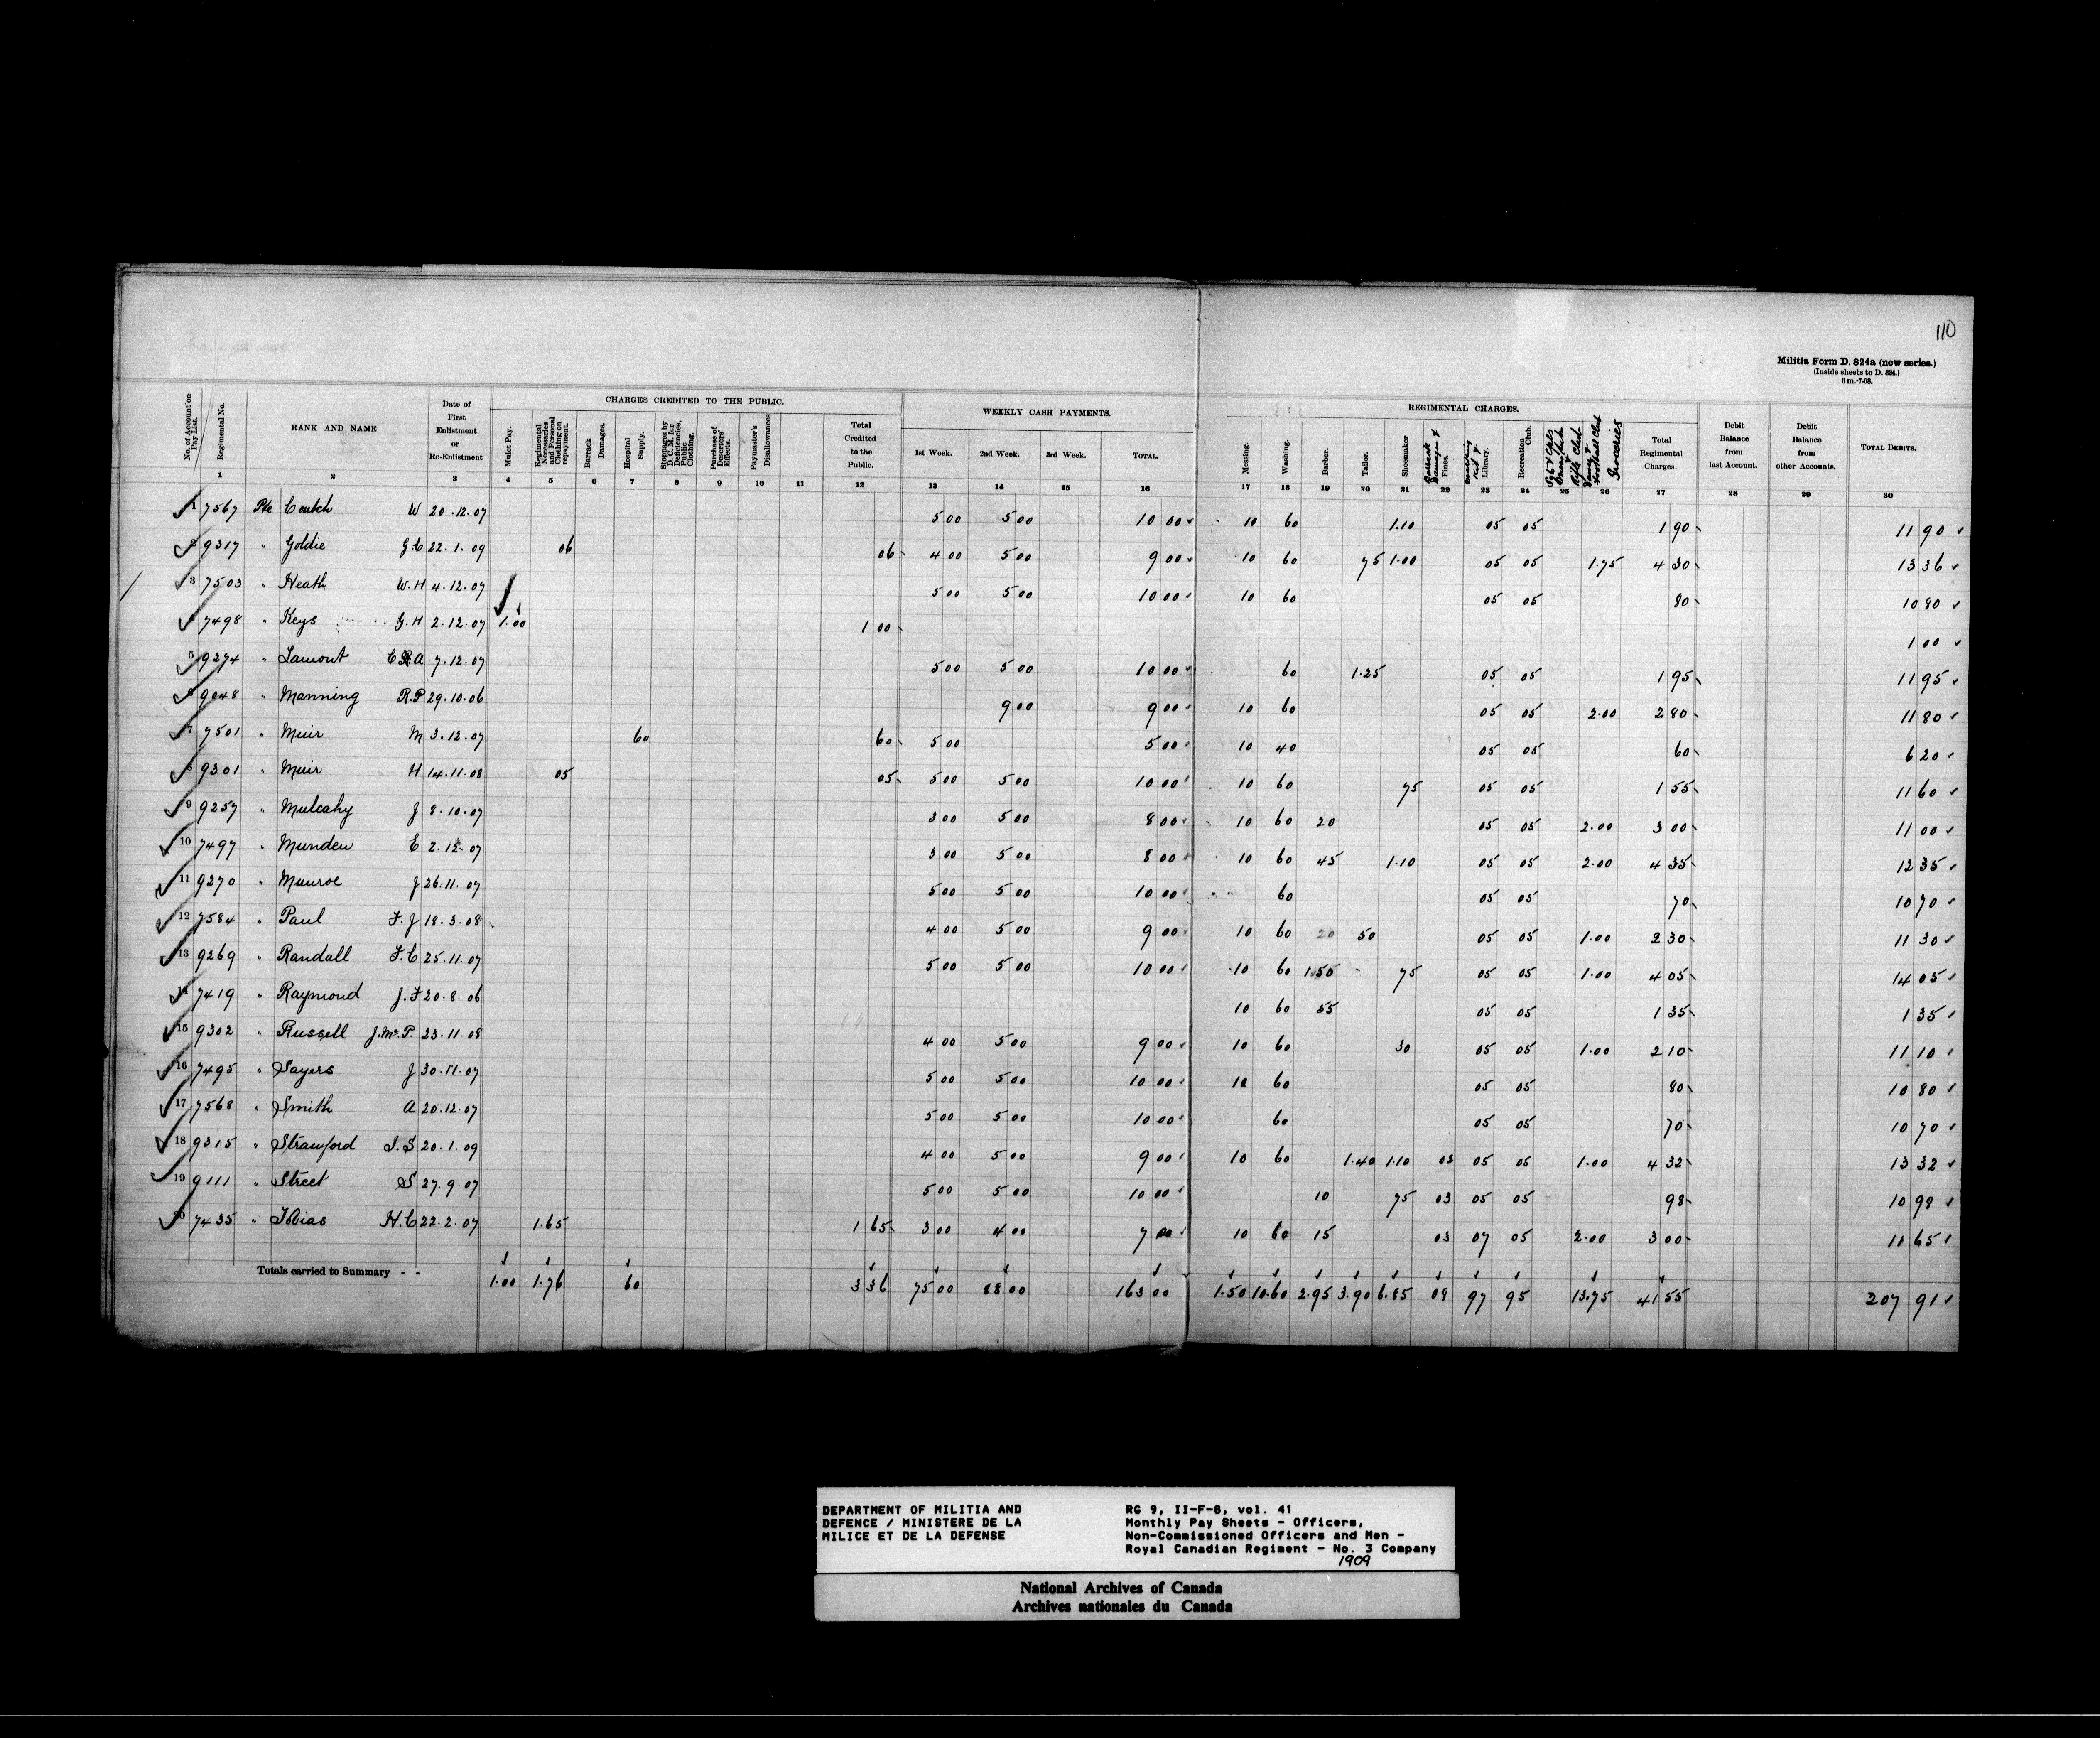 110
Militia Form D. 824a (new series.)
(Inside sheets to D. 824.)
6 m.-7-08.
No. of Account on Pay List. | Regimental No. | RANK AND NAME | Date of First Enlistment or Re-Enlistment | CHARGES CREDITED TO THE PUBLIC. | WEEKLY CASH PAYMENTS. | REGIMENTAL CHARGES. | Debit Balance from last Account. | Debit Balance from other Accounts. | TOTAL DEBITS.
Mulct Pay. | Regimental Necessaries and Personal Clothing on repayment. | Barrack Damages. | Hospital Supply. | Stoppages by D. C. M. for Deficiencies, Public Clothing. | Purchase of Deserters' Effects. | Paymaster's Disallowances | Total Credited to the Public. | 1st Week. | 2nd Week. | 3rd Week. | TOTAL. | Messing. | Washing. | Barber. | Tailor. | Shoemaker | Barrack Damages & Fines. | Library. | Recreation Club. | Groceries | Total Regimental Charges.
1 2 3 4 5 6 7 8 9 10 11 12 13 14 15 16 17 18 19 20 21 22 23 24 25 26 27 28 29 30
1 7567 Pte Coutch W 20.12.07 5 00 5 00 10 00 10 60 1.10 05 05 1 90 11 90
2 9317 " Goldie G.C 22.1.09 06 06 4 00 5 00 9 00 10 60 75 1.00 05 05 1.75 4 30 13 36
3 7503 " Heath W.H 4.12.07 5 00 5 00 10 00 10 60 05 05 80 10 80
7498 " Keys G.H 2.12.07 1.00 1 00 1 00
5 9274 " Lamont C.R.A 7.12.07 5 00 5 00 10 00 60 1.25 05 05 1 95 11 95
6 9048 " Manning R.P 29.10.06 9 00 9 00 10 60 05 05 2.00 2 80 11 80
7 7501 " Muir M 3.12.07 60 60 5 00 5 00 10 40 05 05 60 6 20
8 9301 " Muir H 14.11.08 05 05 5 00 5 00 10 00 10 60 75 05 05 1 55 11 60
9 9257 " Mulcahy J 8.10.07 3 00 5 00 8 00 10 60 20 05 05 2.00 3 00 11 00
10 7497 " Munden E 2.12.07 3 00 5 00 8 00 10 60 45 1.10 05 05 2.00 4 35 12 35
11 9270 " Munroe J 26.11.07 5 00 5 00 10 00 60 05 05 70 10 70
12 7584 " Paul F.J 18.3.08 4 00 5 00 9 00 10 60 20 50 05 05 1.00 2 30 11 30
13 9269 " Randall F.C 25.11.07 5 00 5 00 10 00 10 60 1.50 75 05 05 1.00 4 05 14 05
14 7419 " Raymond J.F 20.8.06 10 60 55 05 05 1 35 1 35
15 9302 " Russell J.Mc.P. 23.11.08 4 00 5 00 9 00 10 60 30 05 05 1.00 2 10 11 10
16 7495 " Sayers J 30.11.07 5 00 5 00 10 00 10 60 05 05 80 10 80
17 7568 " Smith A 20.12.07 5 00 5 00 10 00 60 05 05 70 10 70
18 9315 " Strawford I.S 20.1.09 4 00 5 00 9 00 10 60 1.40 1.10 02 05 05 1.00 4 32 13 32
19 9111 " Street S 27.9.07 5 00 5 00 10 00 10 75 03 05 05 98 10 98
20 7435 " Tobias H.C 22.2.07 1.65 1 65 3 00 4 00 7 00 10 60 15 03 07 05 2.00 3 00 11 65
Totals carried to Summary - - 1.00 1.76 60 3 36 75 00 88 00 163 00 1.50 10.60 2.95 3.90 6.85 08 97 95 13.75 41 55 207 91
DEPARTMENT OF MILITIA AND
DEFENCE / MINISTERE DE LA
MILICE ET DE LA DEFENSE
RG 9, II-F-8, vol. 41
Monthly Pay Sheets - Officers,
Non-Commissioned Officers and Men -
Royal Canadian Regiment - No. 3 Company
1909
National Archives of Canada
Archives nationales du Canada